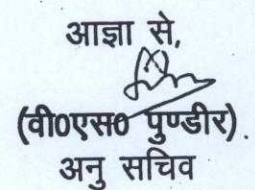 आज्ञा से,
(वी०एस० पुण्डीर).
अनु सचिव